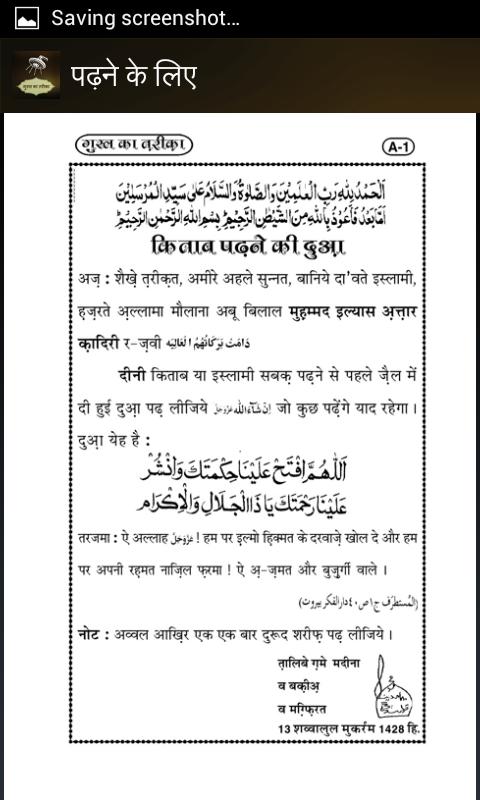 Saving screenshot...
पढ़ने के लिए
गुस्ल का तरीका
गुस्ल का तरीक़ा
A-1
اَلْحَمْدُ لِلّٰهِ رَبِّ الْعٰلَمِيْنَ وَالصَّلٰوةُ وَالسَّلَامُ عَلٰى سَيِّدِ الْمُرْسَلِيْنَ
اَمَّا بَعْدُ فَاَعُوْذُ بِاللّٰهِ مِنَ الشَّيْطٰنِ الرَّجِيْمِ بِسْمِ اللّٰهِ الرَّحْمٰنِ الرَّحِيْمِ
किताब पढ़ने की दुआ़
अज़ : शैख़े त़रीक़त, अमीरे अहले सुन्नत, बानिये दा'वते इस्लामी,
ह़ज़रते अ़ल्लामा मौलाना अबू बिलाल मुह़म्मद इल्यास अ़त़्त़ार
क़ादिरी र-ज़वी دَامَتْ بَرَكَاتُهُمُ الْعَالِيَه
दीनी किताब या इस्लामी सबक़ पढ़ने से पहले ज़ैल में
दी हुई दुआ़ पढ़ लीजिये اِنْ شَآءَ اللّٰه عَزَّوَجَلَّ जो कुछ पढ़ेंगे याद रहेगा।
दुआ़ येह है :
اَللّٰهُمَّ افْتَحْ عَلَيْنَا حِكْمَتَكَ وَانْشُرْ
عَلَيْنَا رَحْمَتَكَ يَا ذَا الْجَلَالِ وَالْاِكْرَام
तरजमा : ऐ अल्लाह عَزَّوَجَلَّ ! हम पर इल्मो हि़क्मत के दरवाज़े खोल दे और हम
पर अपनी रह़मत नाज़िल फ़रमा ! ऐ अ़-ज़मत और बुज़ुर्गी वाले ।
(اَلْمُسْتَطْرَف ج١ ص٤٠ دارالفكر بيروت)
नोट : अव्वल आख़िर एक एक बार दुरूद शरीफ़ पढ़ लीजिये ।
त़ालिबे ग़मे मदीना
व बक़ीअ़
व मग़्फ़िरत
13 शव्वालुल मुकर्रम 1428 हि.